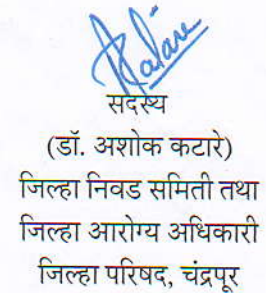 Katare
सदस्य
(डॉ. अशोक कटारे)
जिल्हा निवड समिती तथा
जिल्हा आरोग्य अधिकारी
जिल्हा परिषद, चंद्रपूर